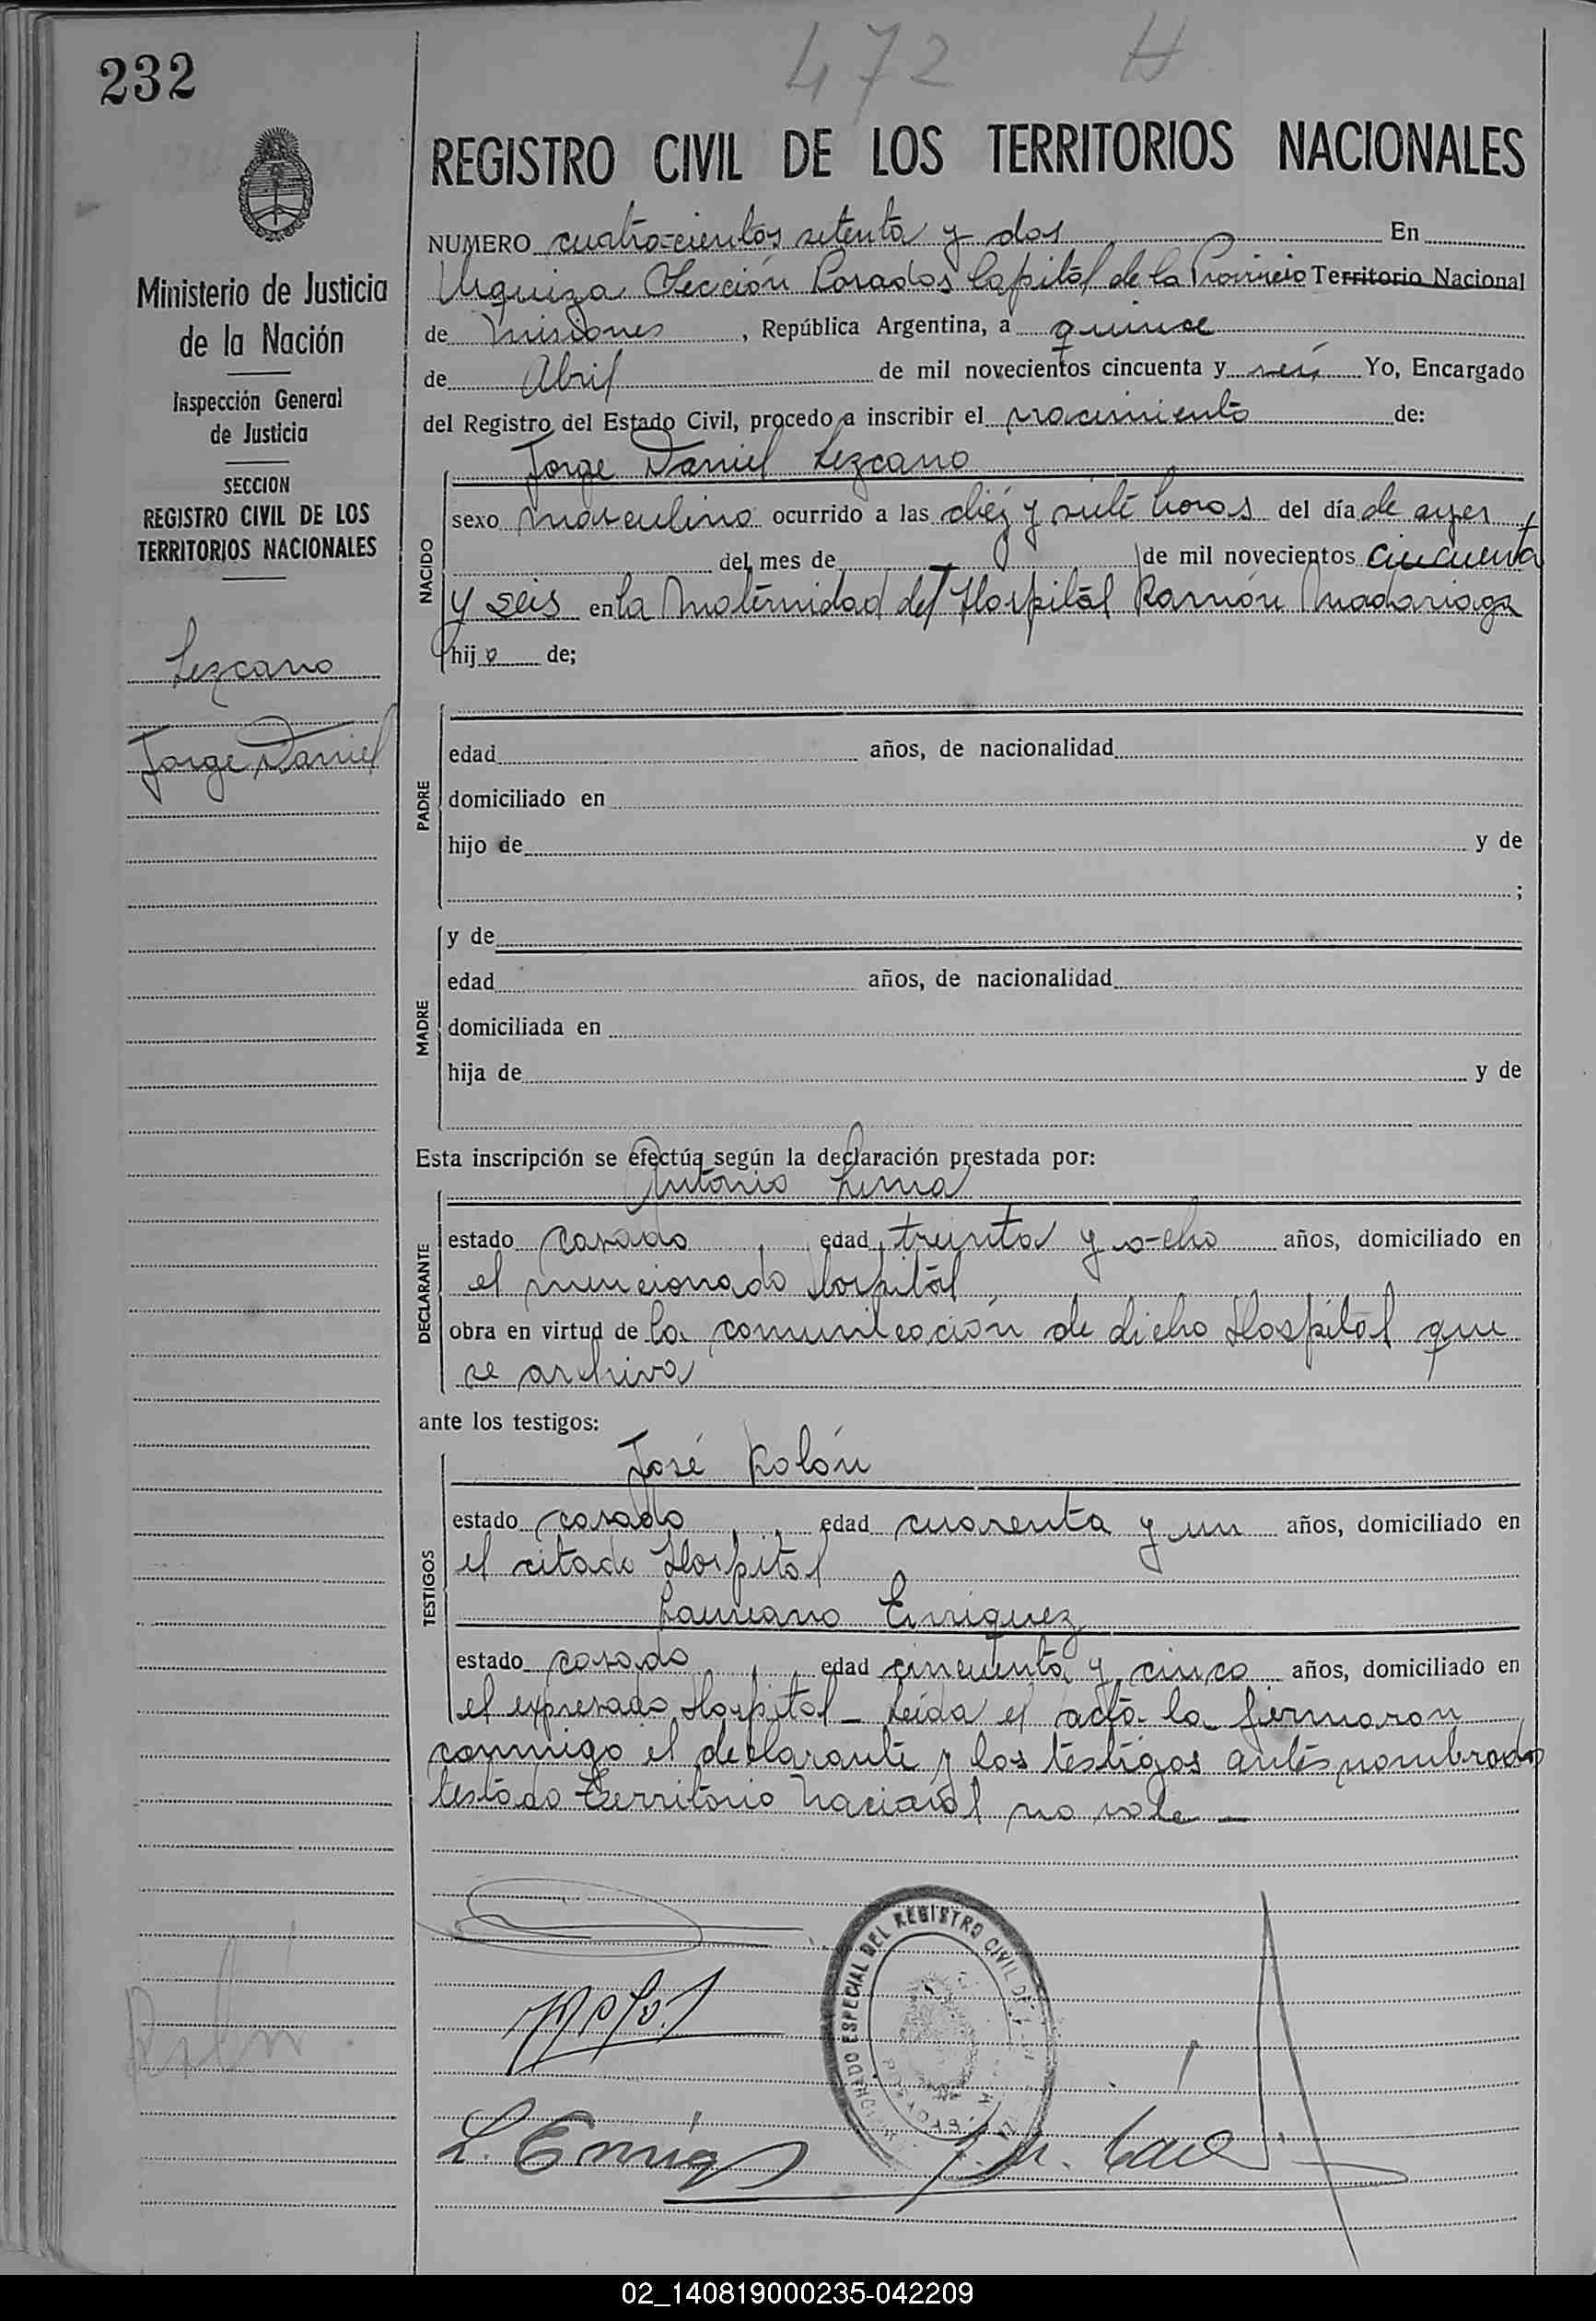 232
472 H
REGISTRO CIVIL DE LOS TERRITORIOS NACIONALES
NUMERO cuatro-cientos setenta y dos En
Urquiza Sección Posadas Capital de la Provincia Territorio Nacional
de Misiones, República Argentina, a quince
de Abril de mil novecientos cincuenta y seis Yo, Encargado
del Registro del Estado Civil, procedo a inscribir el nacimiento de:
Jorge Daniel Lezcano
NACIDO
sexo masculino ocurrido a las diez y siete horas del día de ayer
del mes de de mil novecientos cincuenta
y seis en la Maternidad del Hospital Ramón Madariaga
hijo de;
PADRE
edad años, de nacionalidad
domiciliado en
hijo de y de
;
MADRE
y de
edad años, de nacionalidad
domiciliada en
hija de y de
Esta inscripción se efectúa según la declaración prestada por:
Antonio Lima
DECLARANTE
estado casado, edad treinta y o-cho años, domiciliado en
el mencionado Hospital
obra en virtud de la comunicación de dicho Hospital que
se archiva
ante los testigos:
José Rolón
TESTIGOS
estado casado, edad cuarenta y un años, domiciliado en
el citado Hospital
Laureano Enriquez
estado casado, edad cincuenta y cinco años, domiciliado en
el expresado Hospital - Leida el acta la firmaron
conmigo el declarante y los testigos antes nombrados
testado Territorio Nacional no vale -
L. Enriq
ESPECIAL DEL REGISTRO CIVIL DE
Ministerio de Justicia
de la Nación
Inspección General
de Justicia
SECCION
REGISTRO CIVIL DE LOS
TERRITORIOS NACIONALES
Lezcano
Jorge Daniel
02_140819000235-042209